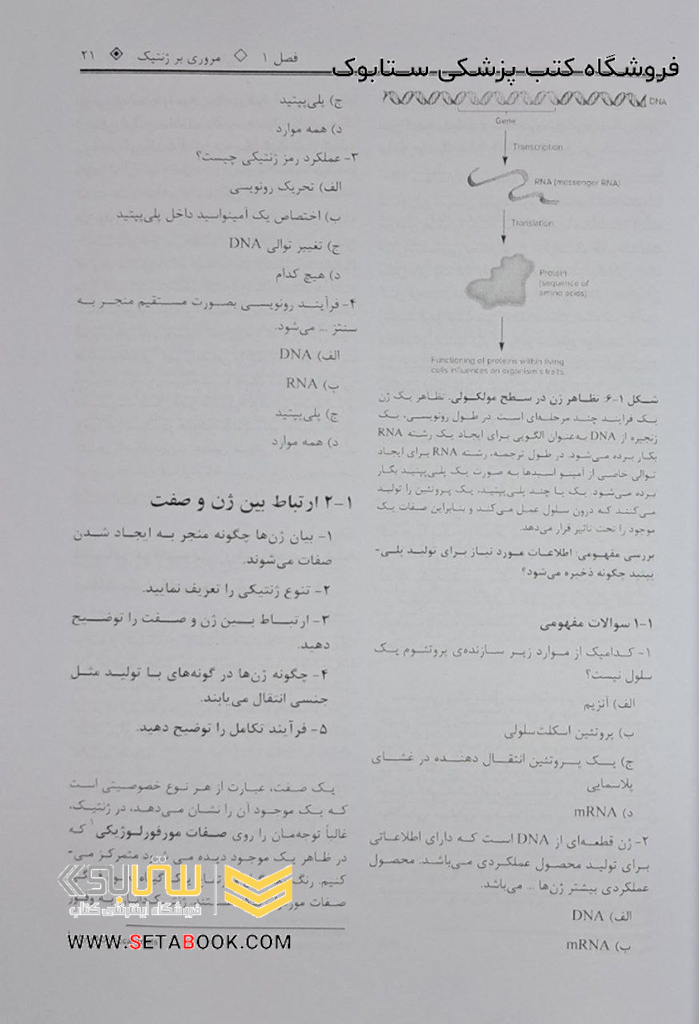 فصل ۱ ◇ مروری بر ژنتیک ۲۱
فروشگاه کتب پزشکی ستابوک
DNA
Gene
Transcription
RNA (messenger RNA)
Translation
Protein
(sequence of
amino acids)
Functioning of proteins within living
cells influences an organism's traits.
شکل ۱-۶: تظاهر ژن در سطح مولکولی. تظاهر یک ژن
یک فرایند چند مرحله‌ای است. در طول رونویسی، یک
زنجیره از DNA به‌عنوان الگویی برای ایجاد یک رشته RNA
بکار برده می‌شود. در طول ترجمه، رشته RNA برای ایجاد
توالی خاصی از آمینو اسیدها به صورت یک پلی‌پپتید بکار
برده می‌شود. یک یا چند پلی‌پپتید، یک پروتئین را تولید
می‌کنند که درون سلول عمل می‌کند و بنابراین صفات یک
موجود را تحت تاثیر قرار می‌دهد.
بررسی مفهومی: اطلاعات مورد نیاز برای تولید پلی-
پپتید چگونه ذخیره می‌شود؟
۱-۱ سوالات مفهومی
۱- کدامیک از موارد زیر سازنده‌ی پروتئوم یک
سلول نیست؟
الف) آنزیم
ب) پروتئین اسکلت‌سلولی
ج) یک پروتئین انتقال دهنده در غشای
پلاسمایی
د) mRNA
۲- ژن قطعه‌ای از DNA است که دارای اطلاعاتی
برای تولید محصول عملکردی می‌باشد. محصول
عملکردی بیشتر ژن‌ها ... می‌باشد.
الف) DNA
ب) mRNA
ج) پلی‌پپتید
د) همه موارد
۳- عملکرد رمز ژنتیکی چیست؟
الف) تحریک رونویسی
ب) اختصاص یک آمینواسید داخل پلی‌پپتید
ج) تغییر توالی DNA
د) هیچ کدام
۴- فرآیند رونویسی بصورت مستقیم منجر به
سنتز ... می‌شود.
الف) DNA
ب) RNA
ج) پلی‌پپتید
د) همه موارد
۲-۱ ارتباط بین ژن و صفت
۱- بیان ژن‌ها چگونه منجر به ایجاد شدن
صفات می‌شوند.
۲- تنوع ژنتیکی را تعریف نمایید.
۳- ارتباط بین ژن و صفت را توضیح
دهید.
۴- چگونه ژن‌ها در گونه‌های با تولید مثل
جنسی انتقال می‌یابند.
۵- فرآیند تکامل را توضیح دهید.
یک صفت، عبارت از هر نوع خصوصیتی است
که یک موجود آن را نشان می‌دهد، در ژنتیک،
غالباً توجه‌مان را روی صفات مورفورلوژیکی۱ که
در ظاهر یک موجود دیده می‌شود متمرکز می-
کنیم. رنگ
صفات
ستابوک
فروشگاه اینترنتی کتاب
WWW.SETABOOK.COM